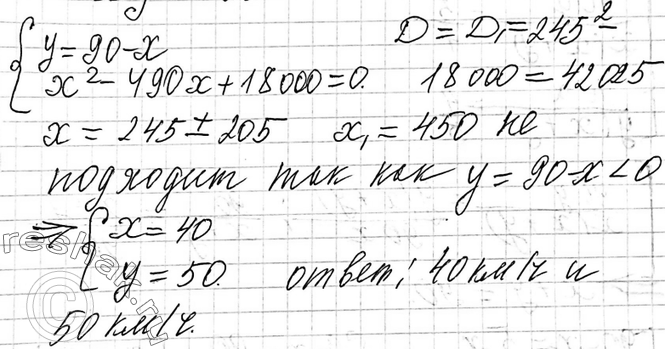 { y = 90 - x    D = D₁ = 245² -
{ x² - 490x + 18000 = 0.    18000 = 42025
x = 245 ± 205    x₁ = 450 не
подходит так как y = 90 - x < 0
⇒ { x = 40
{ y = 50.    ответ: 40 км/ч и
50 км/ч.
reshak.ru